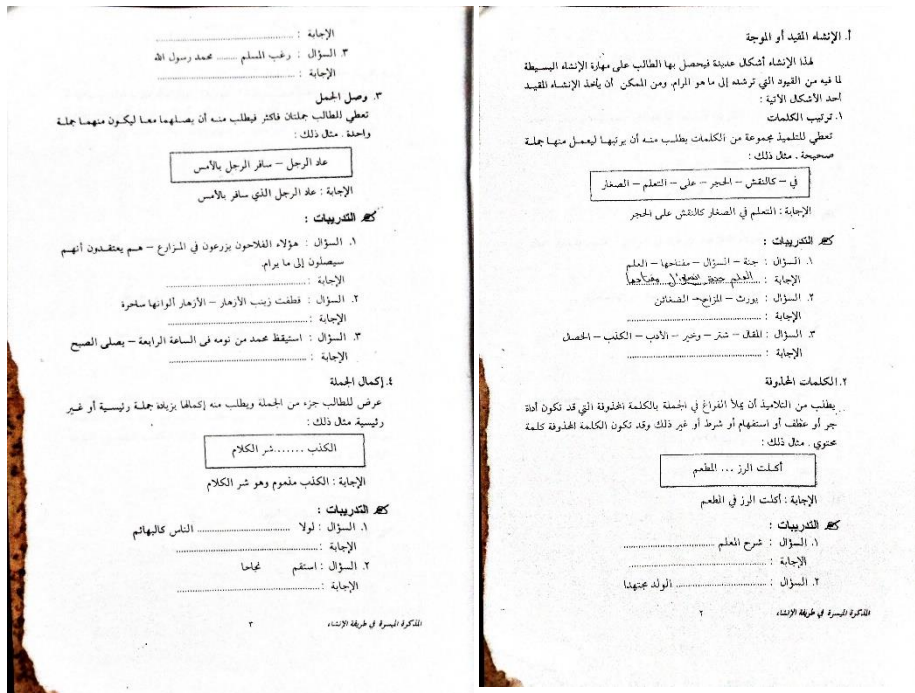 أ. الإنشاء المقيد أو الموجة
لهذا الإنشاء أشكال عديدة فيحصل بها الطالب على مهارة الإنشاء البسيطة
لما فيه من القيود التي ترشده إلى ما هو المرام. ومن الممكن أن يأخذ الإنشاء المقيد
أحد الأشكال الآتية :
١. ترتيب الكلمات
تعطي للتلميذ مجموعة من الكلمات يطلب منه أن يرتبها ليعمل منها جملة
صحيحة . مثال ذلك :
في – كالنقش – الحجر – على – التعلم – الصغار
الإجابة : التعلم في الصغار كالنقش على الحجر
التدريبات :
١. السؤال : جنة – السؤال – مفتاحها – العلم
الإجابة : العلم جنة السؤال مفتاحها
٢. السؤال : يورث – المزاح – الضغائن
الإجابة : ........................
٣. السؤال : المقال – شر – وخير – الأدب – الكذب – الخصال
الإجابة : ........................
٢. الكلمات المحذوفة
يطلب من التلاميذ أن يملأ الفراغ في الجملة بالكلمة المحذوفة التي قد تكون أداة
جر أو عطف أو استفهام أو شرط أو غير ذلك وقد تكون الكلمة المحذوفة كلمة
محتوي . مثال ذلك :
أكلت الرز ... المطعم
الإجابة : أكلت الرز في المطعم
التدريبات :
١. السؤال : شرح المعلم ........................
الإجابة : ........................
٢. السؤال : ........................ الولد مجتهدا
المذكرة الميسرة في طريقة الإنشاء ٢
الإجابة : ........................
٣. السؤال : رغب المسلم ....... محمد رسول الله
الإجابة : ........................
٣. وصل الجمل
تعطي للطالب جملتان فأكثر فيطلب منه أن يصلهما معا ليكون منهما جملة
واحدة . مثال ذلك :
عاد الرجل – سافر الرجل بالأمس
الإجابة : عاد الرجل الذي سافر بالأمس
التدريبات :
١. السؤال : هؤلاء الفلاحون يزرعون في المزارع – هم يعتقدون أنهم
سيصلون إلى ما يرام.
الإجابة : ........................
٢. السؤال : قطفت زينب الأزهار – الأزهار ألوانها ساحرة
الإجابة : ........................
٣. السؤال : استيقظ محمد من نومه فى الساعة الرابعة – يصلى الصبح
الإجابة : ........................
٤. إكمال الجملة
عرض للطالب جزء من الجملة ويطلب منه إكمالها بزيادة جملة رئيسية أو غير
رئيسية. مثال ذلك :
الكذب .......شر الكلام
الإجابة : الكذب مذموم وهو شر الكلام
التدريبات :
١. السؤال : لولا ........................ الناس كالبهائم
الإجابة : ........................
٢. السؤال : استقم نجاحا
الإجابة : ........................
المذكرة الميسرة في طريقة الإنشاء ٣